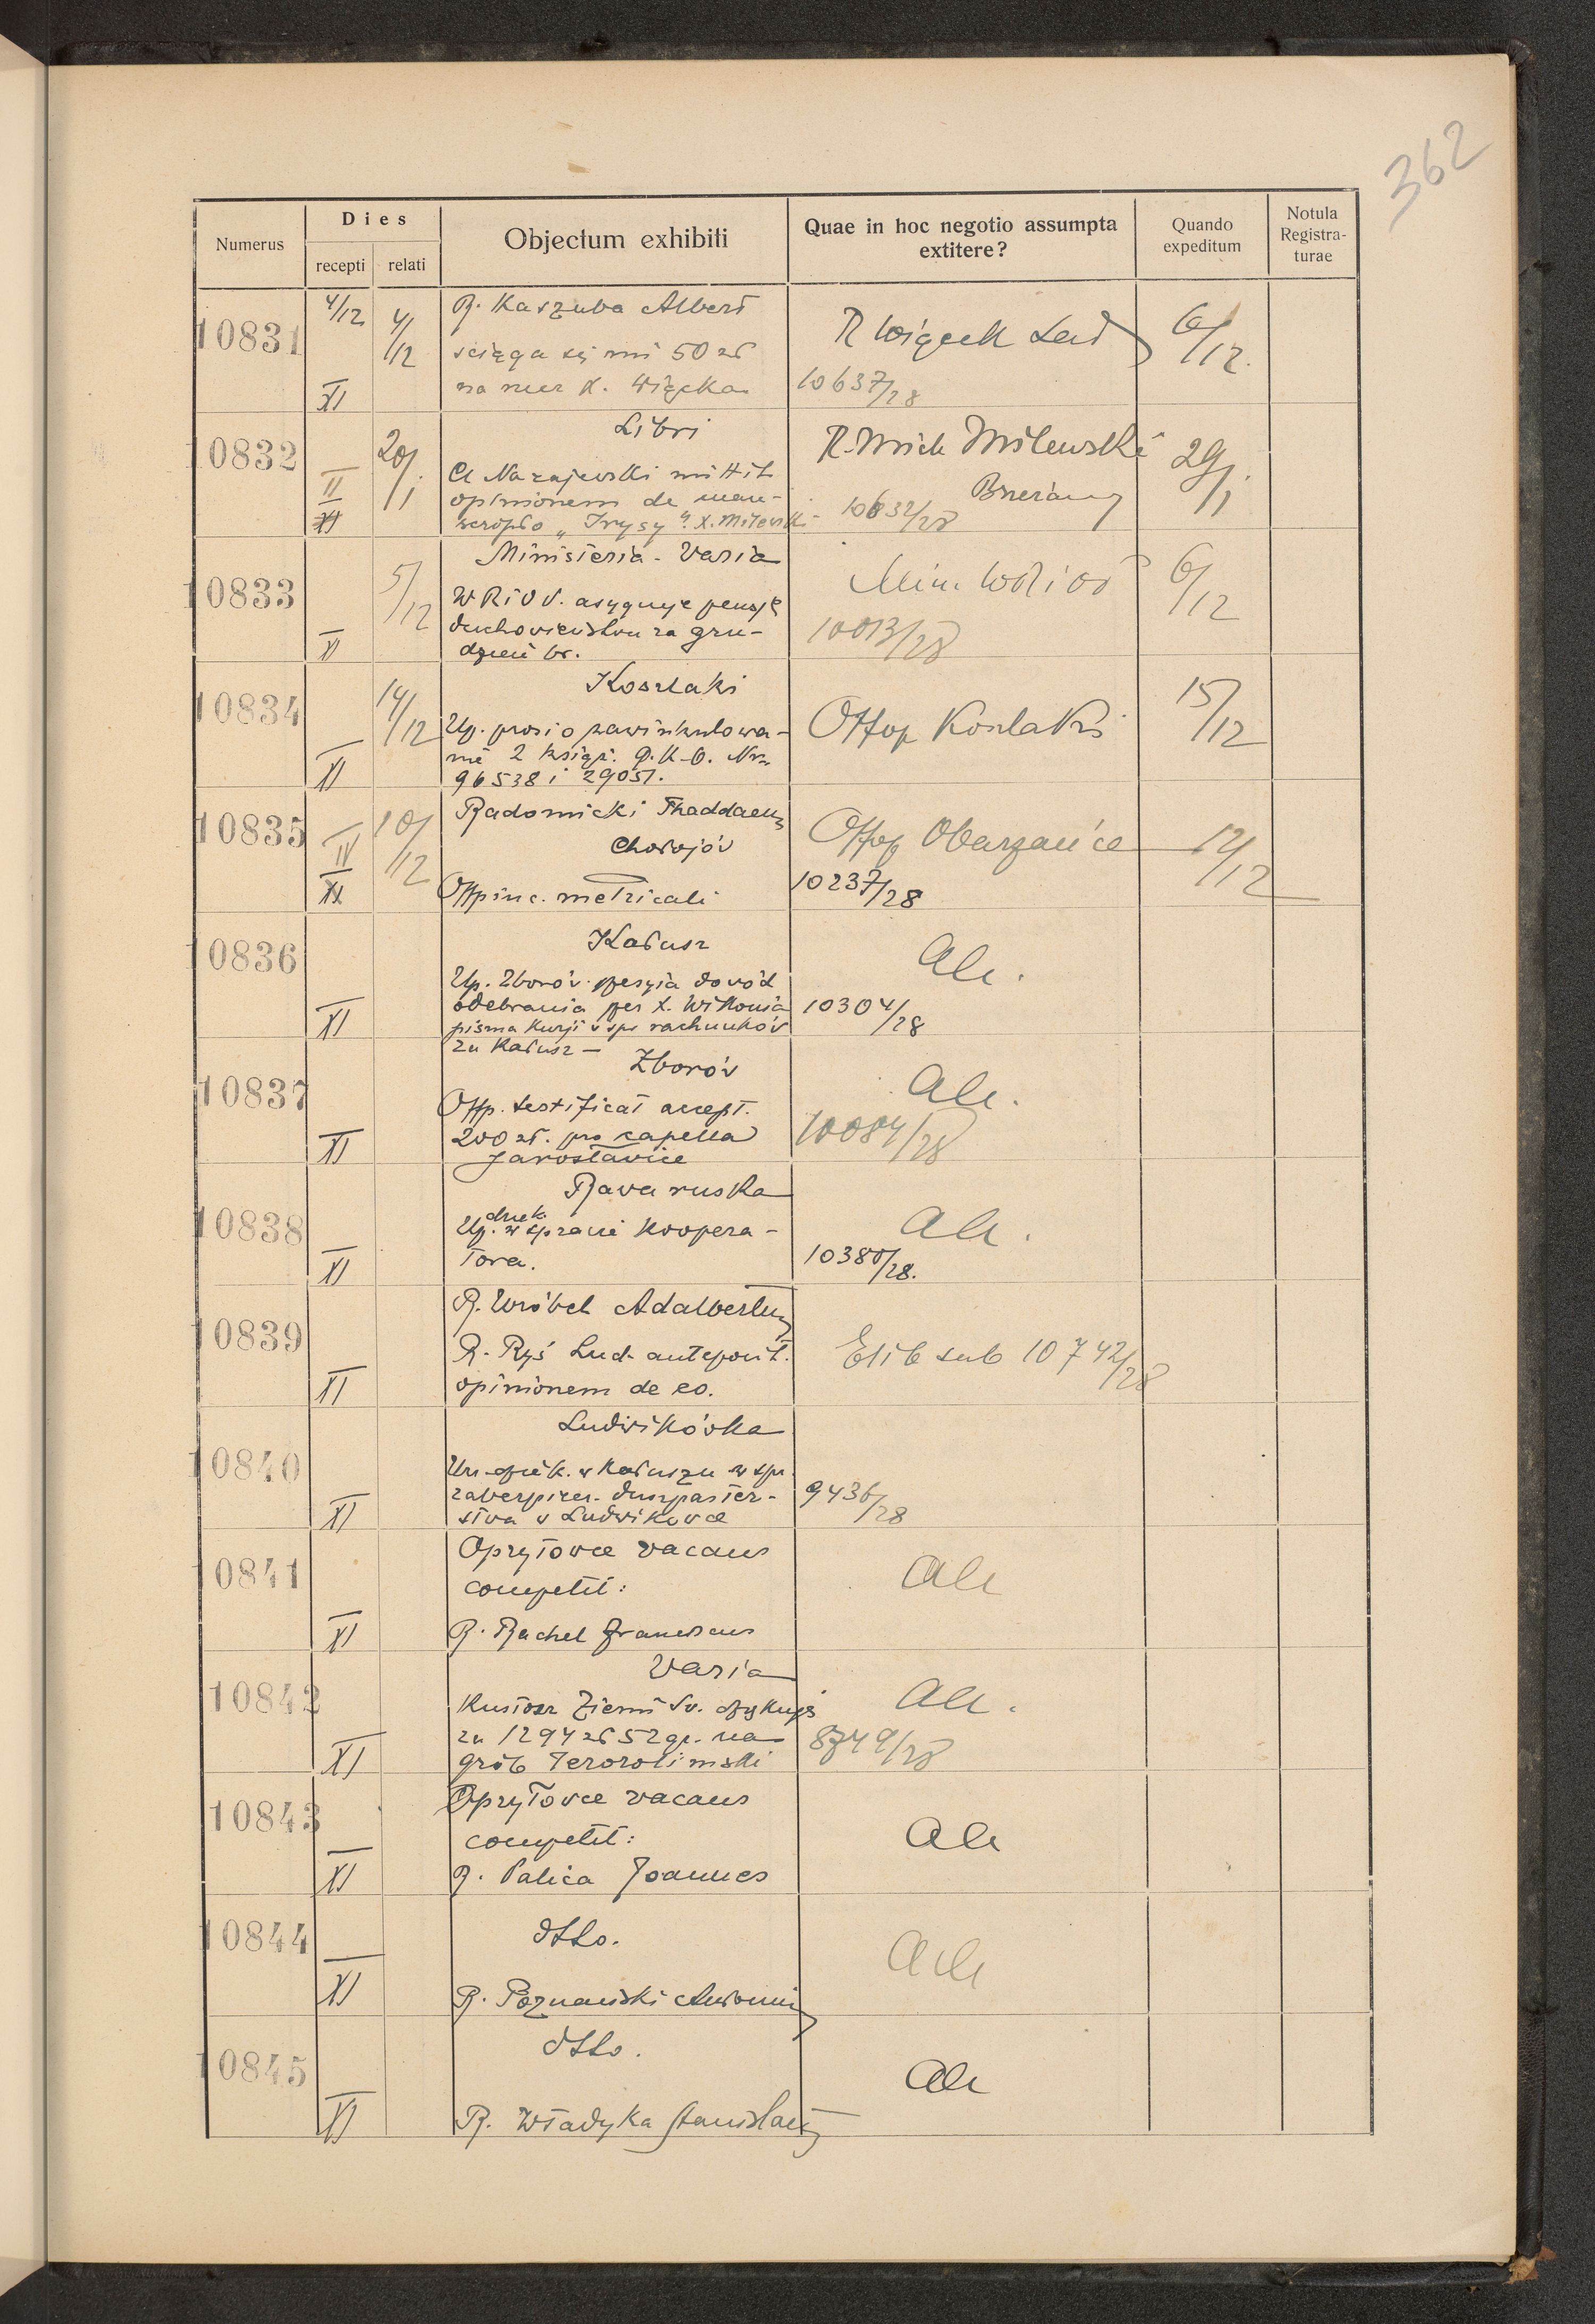 362
Numerus
Dies
recepti relati
Objectum exhibiti
Quae in hoc negotio assumpta extitere?
Quando expeditum
Notula Registra-turae
10831
4/12
4/12
XI
R. Kaszuba Albert
ściąga się mu 50 zł
na rzecz X. Więcka
R Więcek Lud
10637/28
6/12.
10832
20/I
II
XI
Libri
Cl Narajewski mittit
opinionem de manu-
scripto „Irysy" X. Milewski
R. Mich Milewski
Brzeżany
10632/28
29/I
10833
5/12
XI
Ministeria - Varia
W R i O P. asygnuje pensję
duchowieństwu za gru-
dzień br.
Min. W R i O P
10013/28
6/12
10834
14/12
XI
Koszlaki
Up. prosi o zawinkulowa-
nie 2 książ. P.K.O. Nr
96538 i 29051.
Offop Koszlaki
15/12
10835
10/12
IV
XI
Radomicki Thaddaeus
Chorojów
Off in c. metricali
Offop Obarzańce
10237/28
12/12
10836
XI
Kałusz
Up. Zborów dowód
odebrania per X. Witkowia
pisma Kurji w spr rachunków
za Kałusz —
Ale.
10304/28
10837
XI
Zborów
Off. testificat accept.
200 zł. pro capella
Jarosławice
Ale.
10084/28
10838
XI
Rava ruska
Up. dziek. w sprawie Koopera-
tora.
Ale.
10380/28.
10839
XI
R. Wróbel Adalbertus
R. Ryś Lud. anteponit.
opinionem de eo.
Elib sub 10742/28
10840
XI
Ludwikówka
Ur. w Kałuszu w spr
zabezpiecz. duszpaster-
stwa w Ludwikówce
9436/28
10841
XI
Opryłowce vacans
competit:
R. Rachel Franciscus
Ale
10842
XI
Varia
Kustosz Ziemi Św. dziękuje
za 1294 zł 52 gr. na
grób Jerozolimski
Ale.
8749/28
10843
XI
Opryłowce vacans
competit:
R. Palica Joannes
Ale
10844
XI
dtto.
R. Poznański Antonius
Ale
10845
XI
dtto.
R. Władyka Stanislaus
Ale